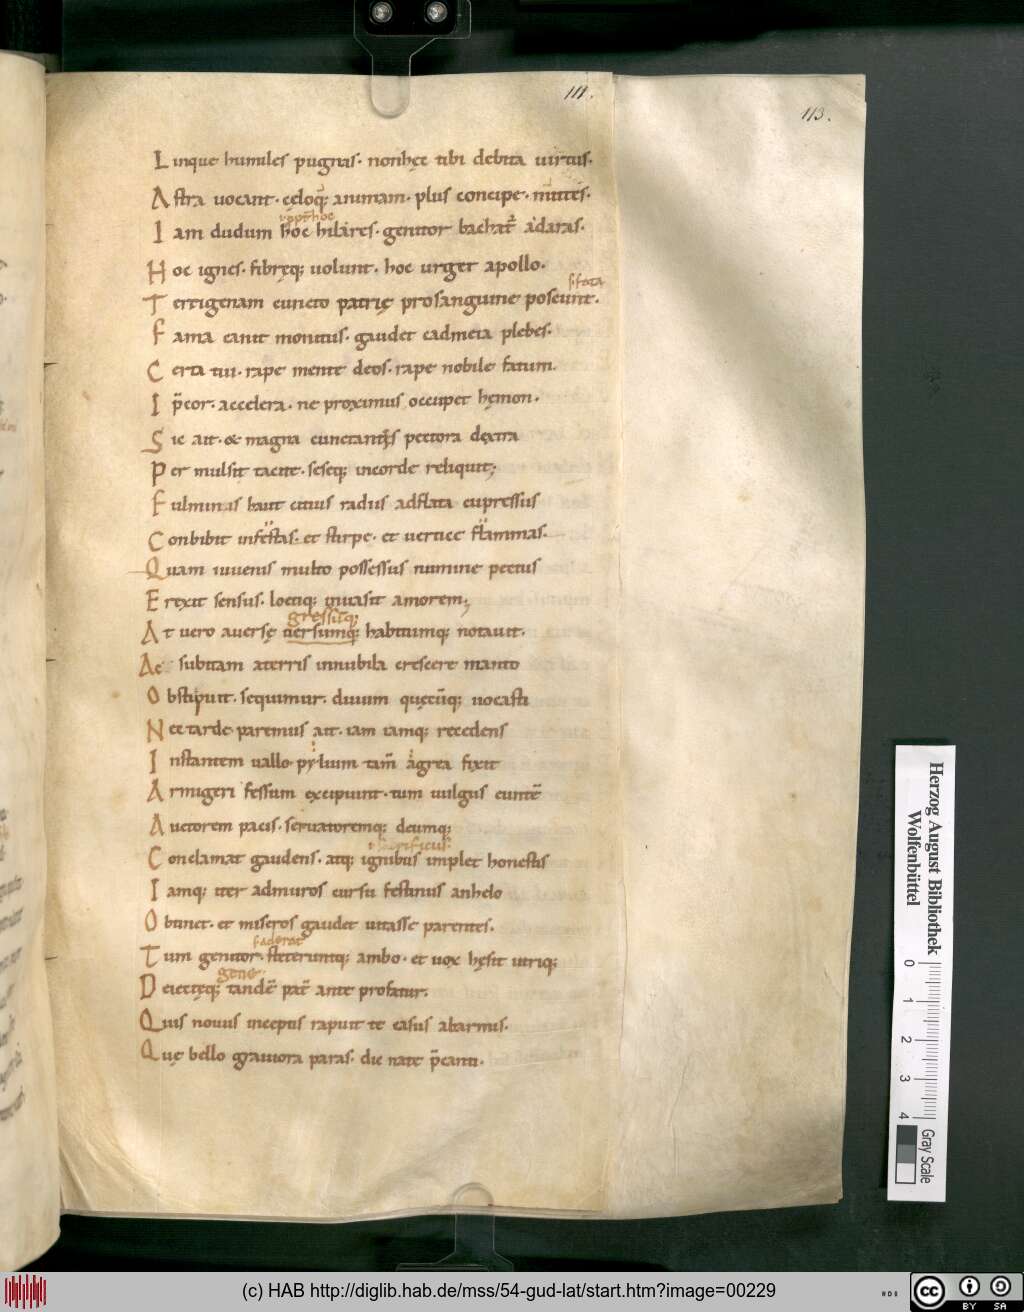 111.
113.
Linque humiles pugnas· nonhęc tibi debita uirtus·
Astra uocant· cęloq; animam· plus concipe· mittes·
uł pp̄ hoc
Iam dudum hoc hilares· genitor bachat᷑ adaras·
Hoc ignes· fibręq; uolunt· hoc urget apollo·
Terrigenam cuncto patrię prosanguine poscunt·
Fama canit monitus· gaudet cadmeia plebes·
Certa tui· rape mente deos· rape nobile fatum·
I p̄cor· accelera· ne proximus occupet hęmon·
Sic ait· & magna cunctantis pectora dextra
Per mulsit tacite· seseq; incorde reliquit;
Fulminis haut citius radiis adflata cupressus
Conbibit infestas· et stirpe· et uertice flammas·
Quam iuuenis multo possessus numine pectus
Erexit sensus· loetiq; inuasit amorem;
gressūq;
At uero auersę uersumq; habitumq; notauit·
Ac subitam aterris innubila crescere manto
Obstipuit· sequimur· diuum quęcūq; uocasti
Nec tarde paremus ait· iam iamq; recedens
Instantem uallo pylium tam̄ agrea fixit
Armigeri fessum excipiunt· tum uulgus eunte᷑
Auctorem pacis· seruatoremq; deumq;
Conclamat gaudens· atq; ignibus implet honestis
Iamq; iter admuros cursu festinus anhelo
Obtinet· et miseros gaudet uitasse parentes·
Tum genitor· steteruntq; ambo· et uox hęsit utriq;
Deiectęq; tandē pat᷑ ante profatur·
Quis nouus inceptis rapuit te casus abarmis·
Quę bello grauiora paras· dic nate p̄canti·
Herzog August Bibliothek
Wolfenbüttel
0 1 2 3 4
Gray Scale
(c) HAB http://diglib.hab.de/mss/54-gud-lat/start.htm?image=00229
HAB
cc BY SA